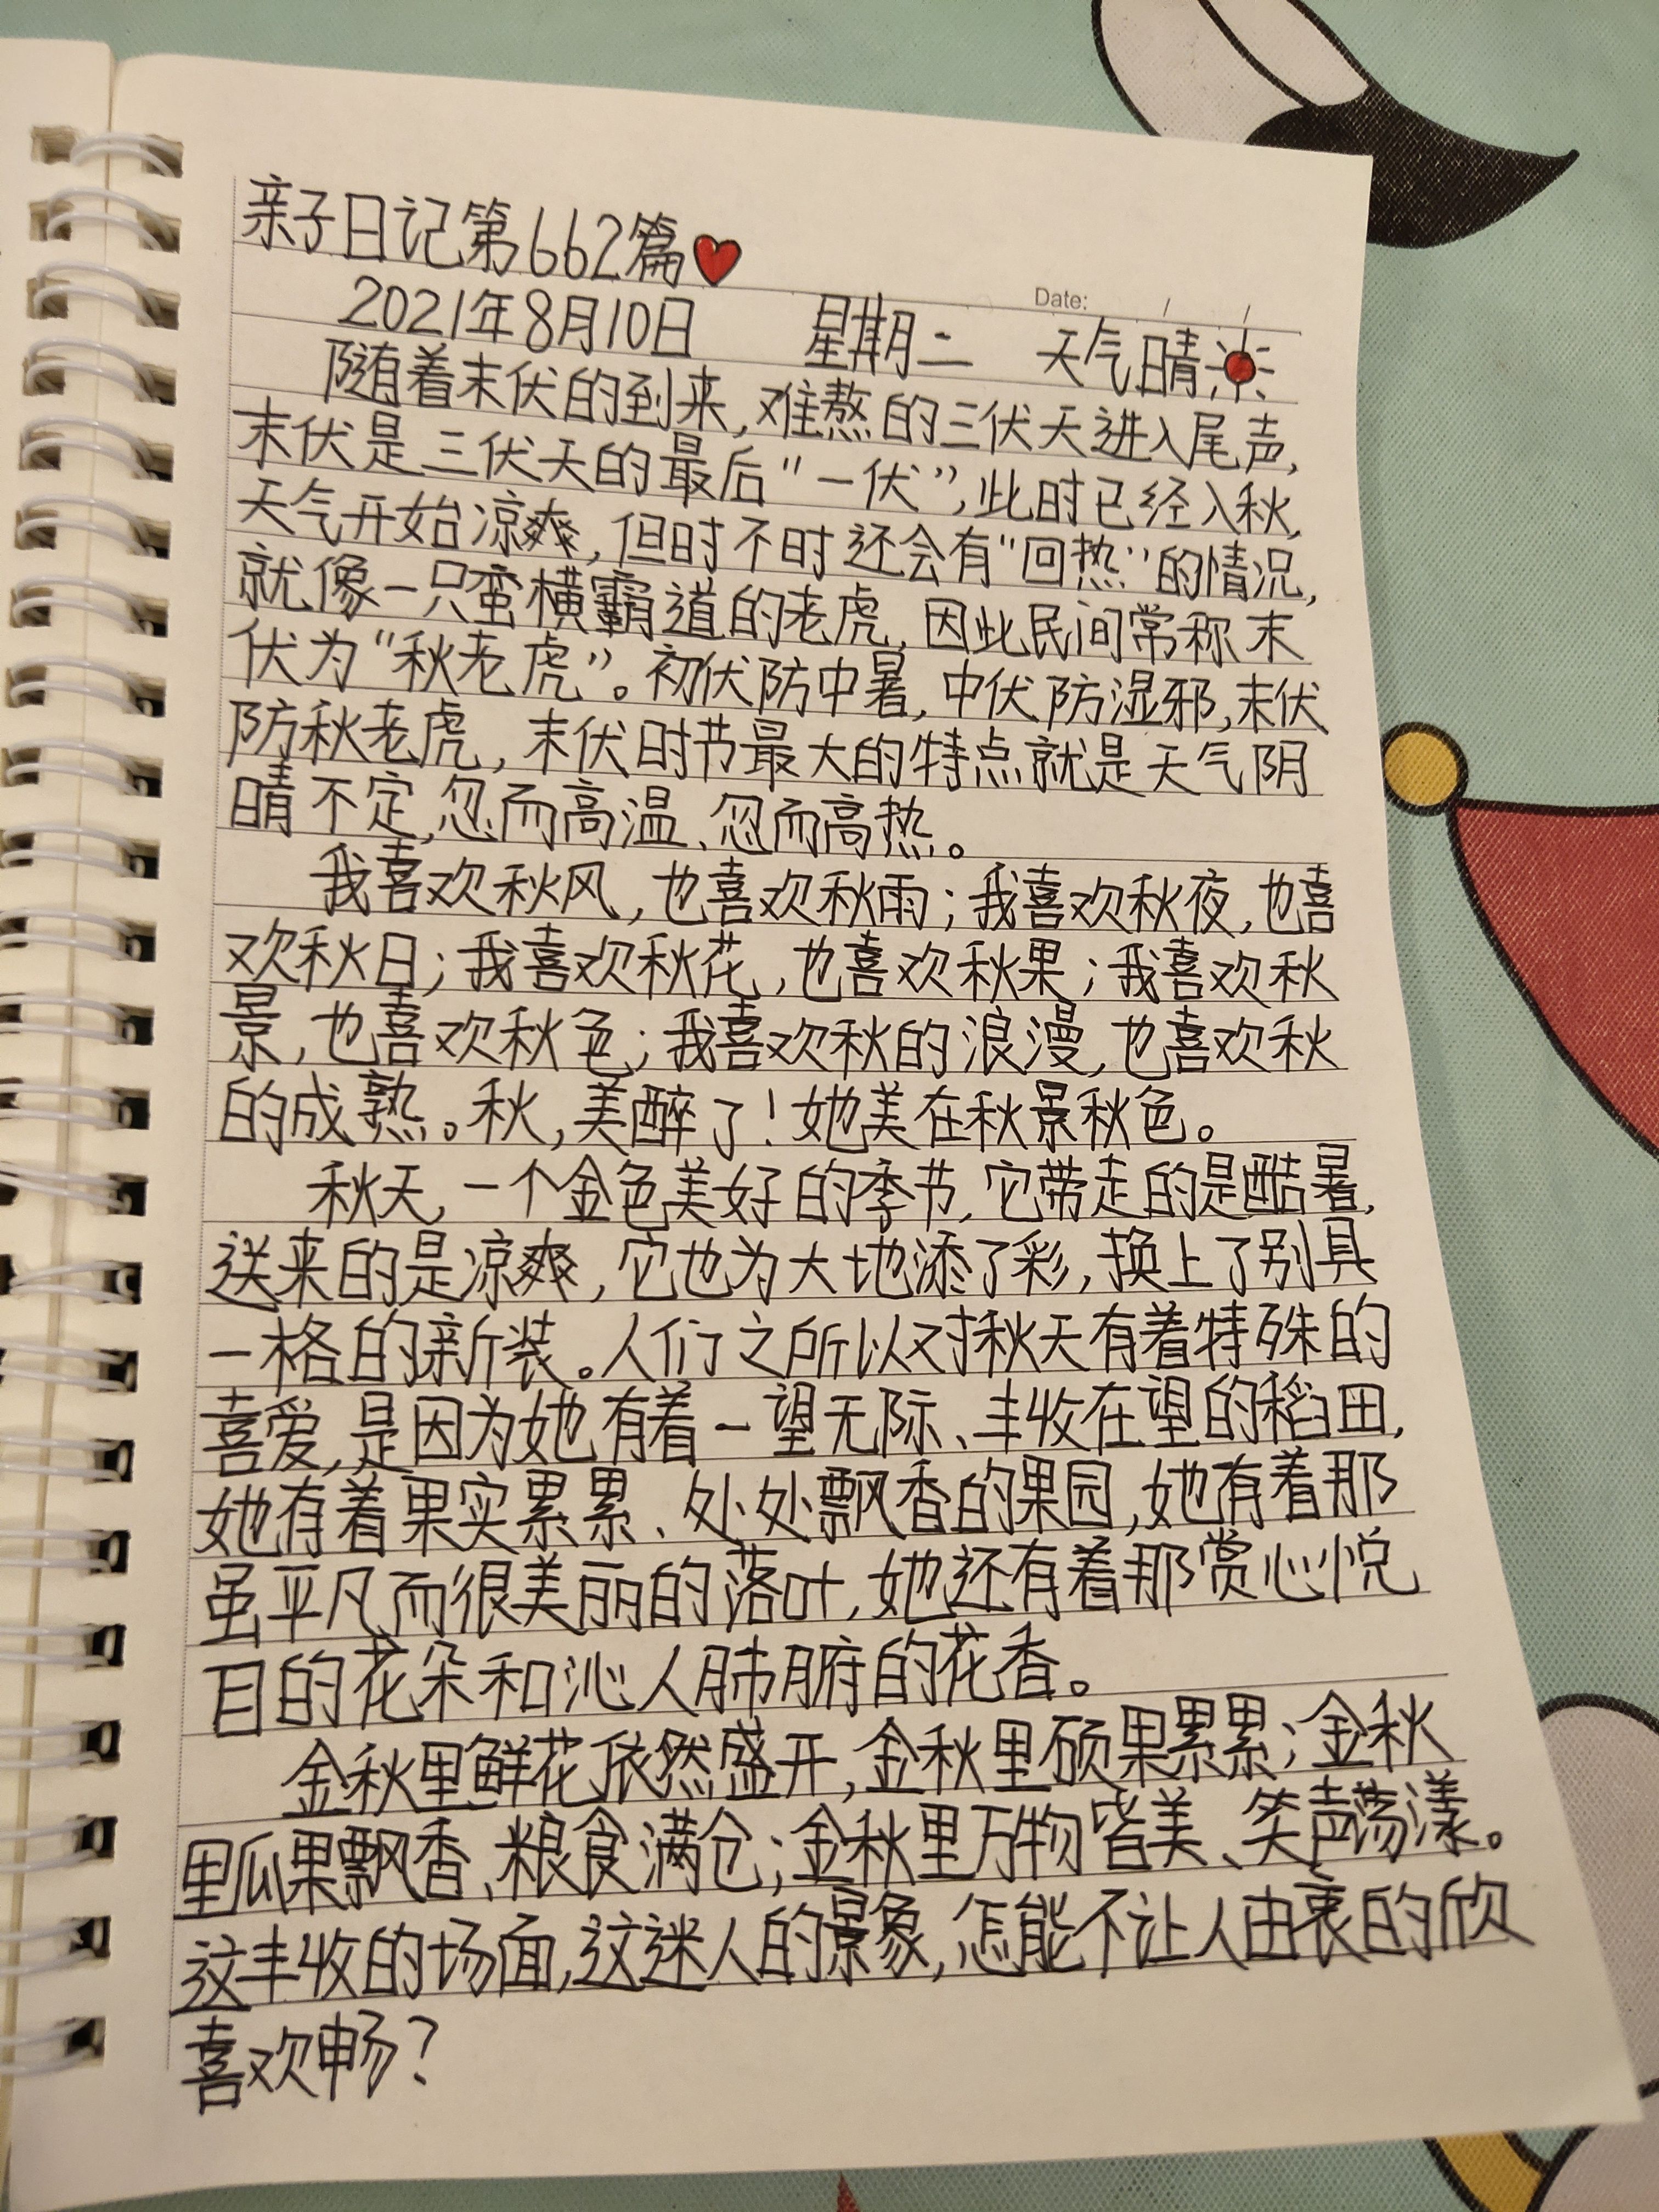 亲子日记第662篇
Date: / /
2021年8月10日 星期二 天气晴
随着末伏的到来,难熬的三伏天进入尾声,
末伏是三伏天的最后“一伏”,此时已经入秋,
天气开始凉爽,但时不时还会有“回热”的情况,
就像一只蛮横霸道的老虎,因此民间常称末
伏为“秋老虎”。初伏防中暑,中伏防湿邪,末伏
防秋老虎,末伏时节最大的特点就是天气阴
晴不定,忽而高温、忽而高热。
我喜欢秋风,也喜欢秋雨;我喜欢秋夜,也喜
欢秋日;我喜欢秋花,也喜欢秋果;我喜欢秋
景,也喜欢秋色;我喜欢秋的浪漫,也喜欢秋
的成熟。秋,美醉了!她美在秋景秋色。
秋天,一个金色美好的季节,它带走的是酷暑,
送来的是凉爽,它也为大地添了彩,换上了别具
一格的新装。人们之所以对秋天有着特殊的
喜爱,是因为她有着一望无际、丰收在望的稻田,
她有着果实累累、处处飘香的果园,她有着那
虽平凡而很美丽的落叶,她还有着那赏心悦
目的花朵和沁人肺腑的花香。
金秋里鲜花依然盛开,金秋里硕果累累;金秋
里瓜果飘香、粮食满仓;金秋里万物皆美、笑声荡漾。
这丰收的场面,这迷人的景象,怎能不让人由衷的欣
喜欢畅?